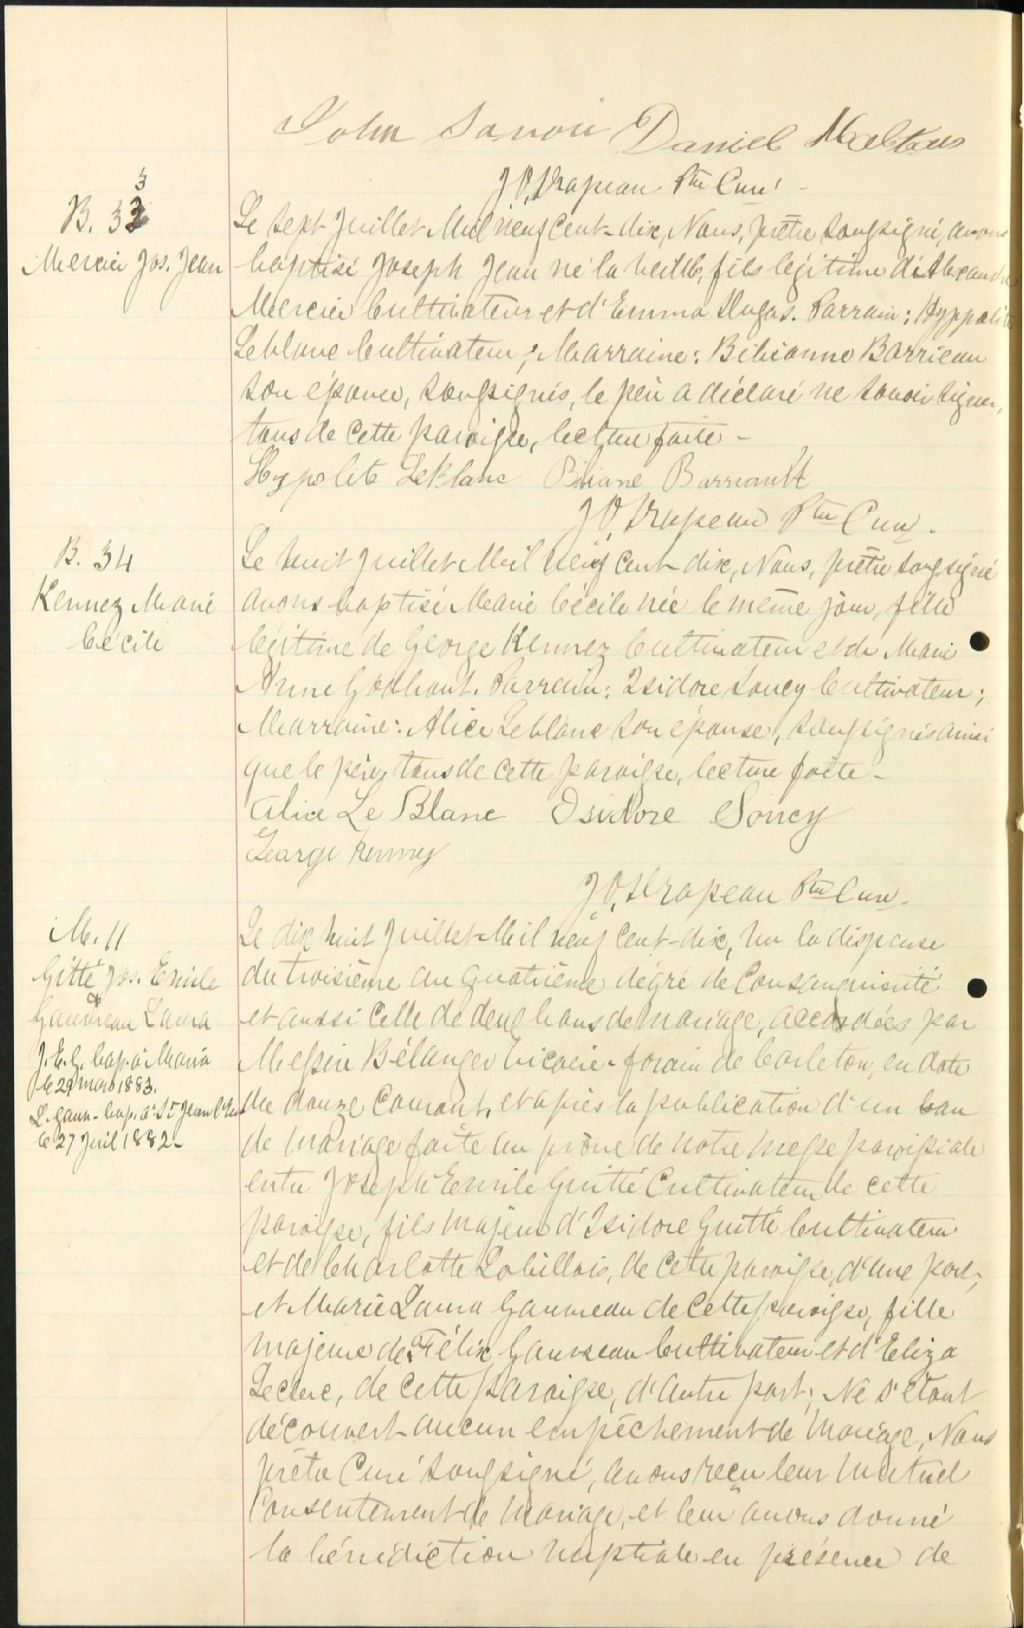 John Savoie Daniel
J. O. Drapeau Ptre Curé
B. 33
Mercier Jos. Jean
Le sept Juillet Mil neuf cent-dix, Nous, prêtre soussigné, avons
baptisé Joseph Jean né la veille, fils légitime d'Alexandre
Mercier Cultivateur et d'Emma Dugas. Parrain: Hyppolite
Leblanc Cultivateur; Marraine: Bibianne Barrieau
son épouse, soussignés, le père a déclaré ne savoir signer,
tous de cette paroisse, lecture faite -
Hypolite LeBlanc Biane Barriault
J. O. Drapeau Ptre Curé.
B. 34
Kennez Marie
Cécile
Le huit Juillet Mil neuf cent-dix, Nous, prêtre soussigné
avons baptisé Marie Cécile née le même jour, fille
légitime de George Kennez Cultivateur et de Marie
Anne. Parrain: Isidore Soucy Cultivateur;
Marraine: Alice Leblanc son épouse, soussignés ainsi
que le père, tous de cette paroisse, lecture faite -
Alice Le Blanc Isidore Soucy
George Kenney
J. O. Drapeau Ptre Curé.
M. 11
Gitté Jos. Emile
&
Gauvreau Laura
J. E. G. bap. à Maria
le 29 mars 1883.
L. Gauv- bap. à St Jean l'
le 27 Juil 1882
Le dix huit Juillet Mil neuf cent-dix, Vu la dispense
du troisième au quatrième dégré de Consanguinité
et aussi celle de deux bans de mariage, accordées par
Messire Bélanger Vicaire-forain de Carleton, en date
du douze Courant, et après la publication d'un ban
de mariage faite au prône de notre messe paroissiale
entre Joseph Emile Guitté Cultivateur de cette
paroisse, fils majeur d'Isidore Guitté Cultivateur
et de Charlotte Labillois, de cette paroisse, d'une part;
et Marie Laura Gauvreau de cette paroisse, fille
majeure de Félix Gauvreau Cultivateur et d'Eliza
Leclerc, de cette paroisse, d'autre part; Ne s'étant
découvert aucun empêchement de mariage, Nous
prêtre Curé soussigné, avons reçu leur mutuel
Consentement de Mariage, et leur avons donné
la bénédiction nuptiale en présence de